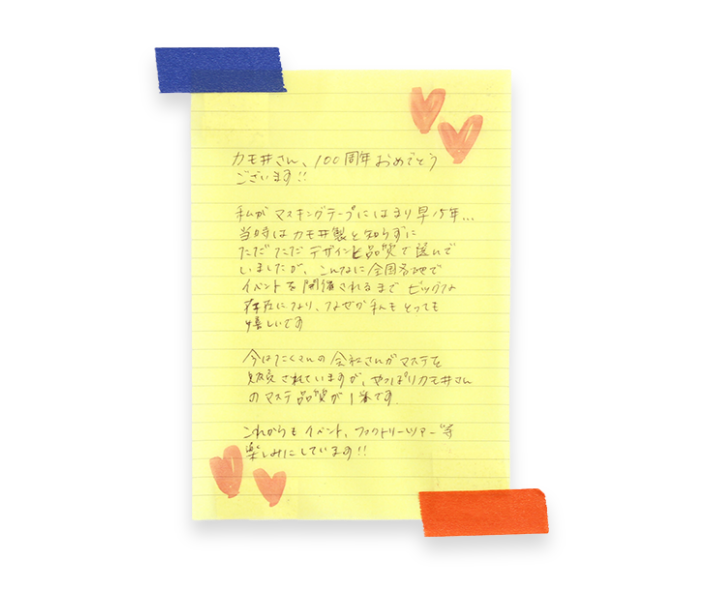 カモ井さん、100周年おめでとう
ございます!!
私がマスキングテープにはまり早15年...
当時はカモ井製と知らずに
ただただデザインと品質で選んで
いましたが、こんなに全国各地で
イベントを開催されるまでビッグな
存在になり、なぜか私もとっても
嬉しいです
今はたくさんの会社さんがマステを
販売されていますが、やっぱりカモ井さん
のマステ品質が1番です
これからもイベント、ファクトリーツアー等
楽しみにしています!!